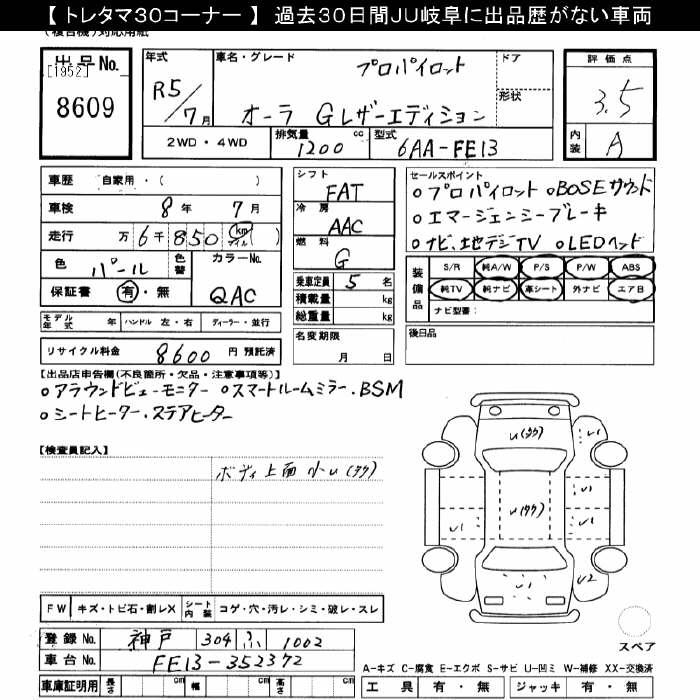 【 トレタマ30コーナー 】 過去30日間JU岐阜に出品歴がない車両
(複合機)対応用紙
出品No.
[1952]
8609
年式
R5/7月
車名・グレード
プロパイロット
オーラ Gレザーエディション
ドア
形状
評価点
3.5
内装
A
2WD・4WD
排気量 1200 cc
型式 6AA-FE13
車歴 自家用・( )
車検 8年 7月
走行 万 6千 850 km マイル ( )
色 パール
色替
カラーNo.
QAC
保証書 有・無
モデル年式 年 ハンドル 左・右 ディーラー・並行
リサイクル料金 8600 円 預託済
シフト
FAT
冷房
AAC
燃料
G
乗車定員 5 名
積載量 kg
総重量 kg
名変期限
月 日
セールスポイント
○プロパイロット ○BOSEサウンド
○エマージェンシーブレーキ
○ナビ、地デジTV ○LEDヘッド
装備品
S/R 純A/W P/S P/W ABS
純TV 純ナビ 革シート 外ナビ エアB
ナビ型番:
後日品
【出品店申告欄(不良箇所・欠品・注意事項等)】
○アラウンドビューモニター ○スマートルームミラー.BSM
○シートヒーター.ステアヒーター
【検査員記入】
ボディ上面 小U(タク)
U(タク)
U(タク)
U1
U1
U1
U1
U2
FW キズ・トビ石・割レX シート内装 コゲ・穴・汚レ・シミ・破レ・スレ
スペア
登録No. 神戸 304 ふ 1002
車台No. FE13-352372
A-キズ C-腐食 E-エクボ S-サビ U-凹ミ W-補修 XX-交換済
車庫証明用 長さ cm 幅 cm 高さ cm
工具 有・無 ジャッキ 有・無